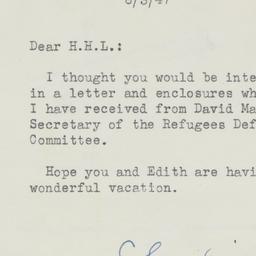 Dear H.H.L.:
I thought you would be inte
in a letter and enclosures wh
I have received from David Ma
Secretary of the Refugees Def
Committee.
Hope you and Edith are havi
wonderful vacation.